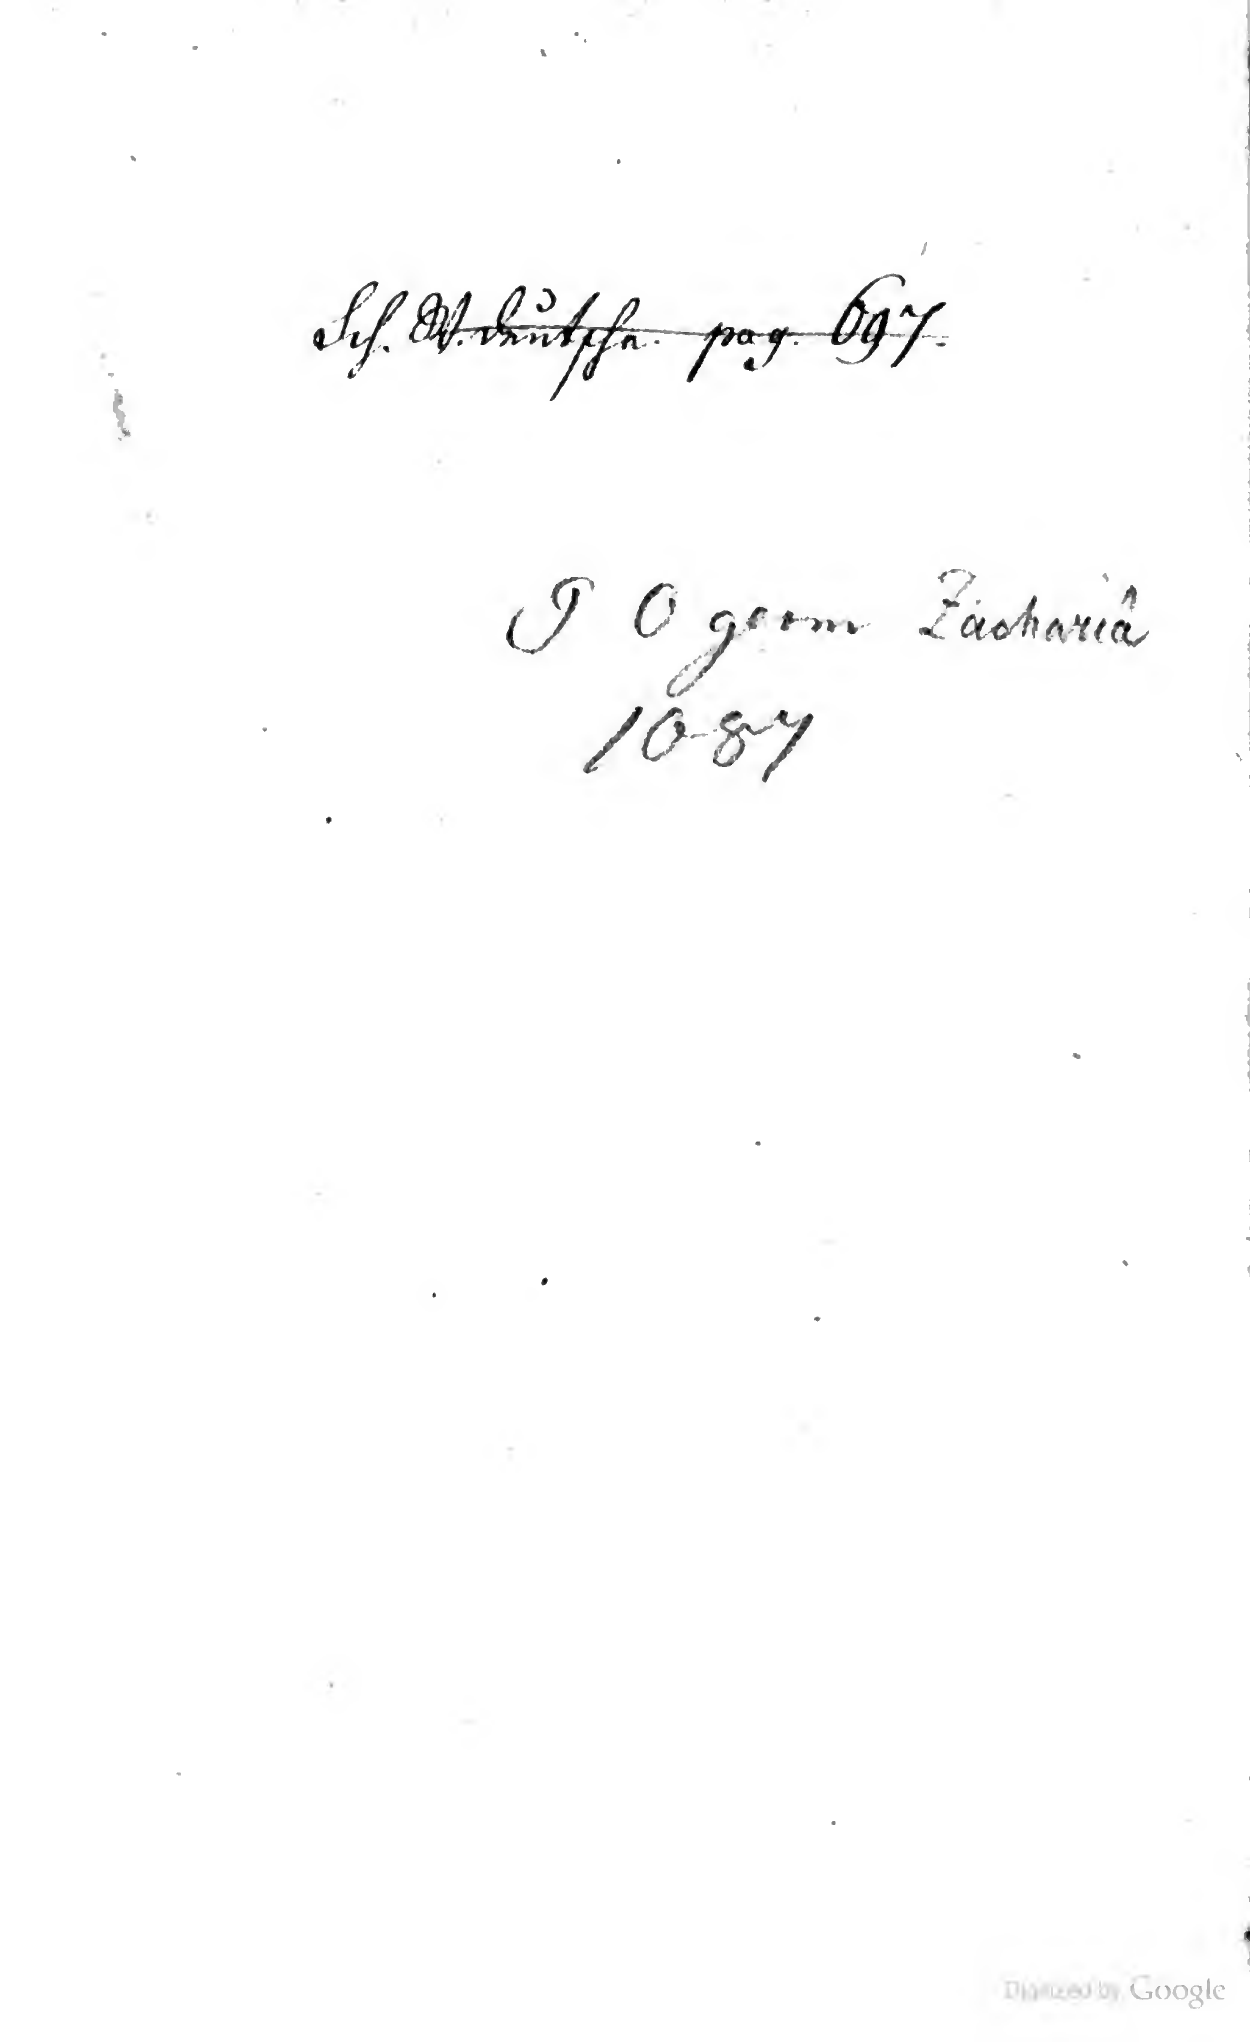 Sch. W. deutsche. pag. 697.
P O germ Zachariä
1087
Digitized by Google